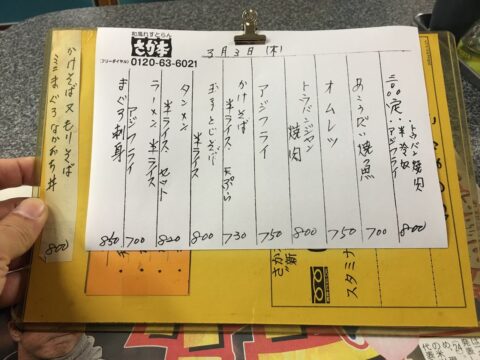 和風れすとらん
さか本
(フリーダイヤル) 0120-63-6021
3月3日(木)
トウバン焼肉
半冷奴
アジフライ
800
あこうだい焼魚
700
オムレツ
750
トウバンジャン
焼肉
800
アジフライ
750
かけそば
半ライス 天ぷら
730
玉子とじそば
半ライス
800
タンメン
半ライス セット
820
ラーメン 半ライス
アジフライ
700
まぐろ刺身
850
かけそば又もりそば
ミニまぐろなかおち丼
800
スタミナ